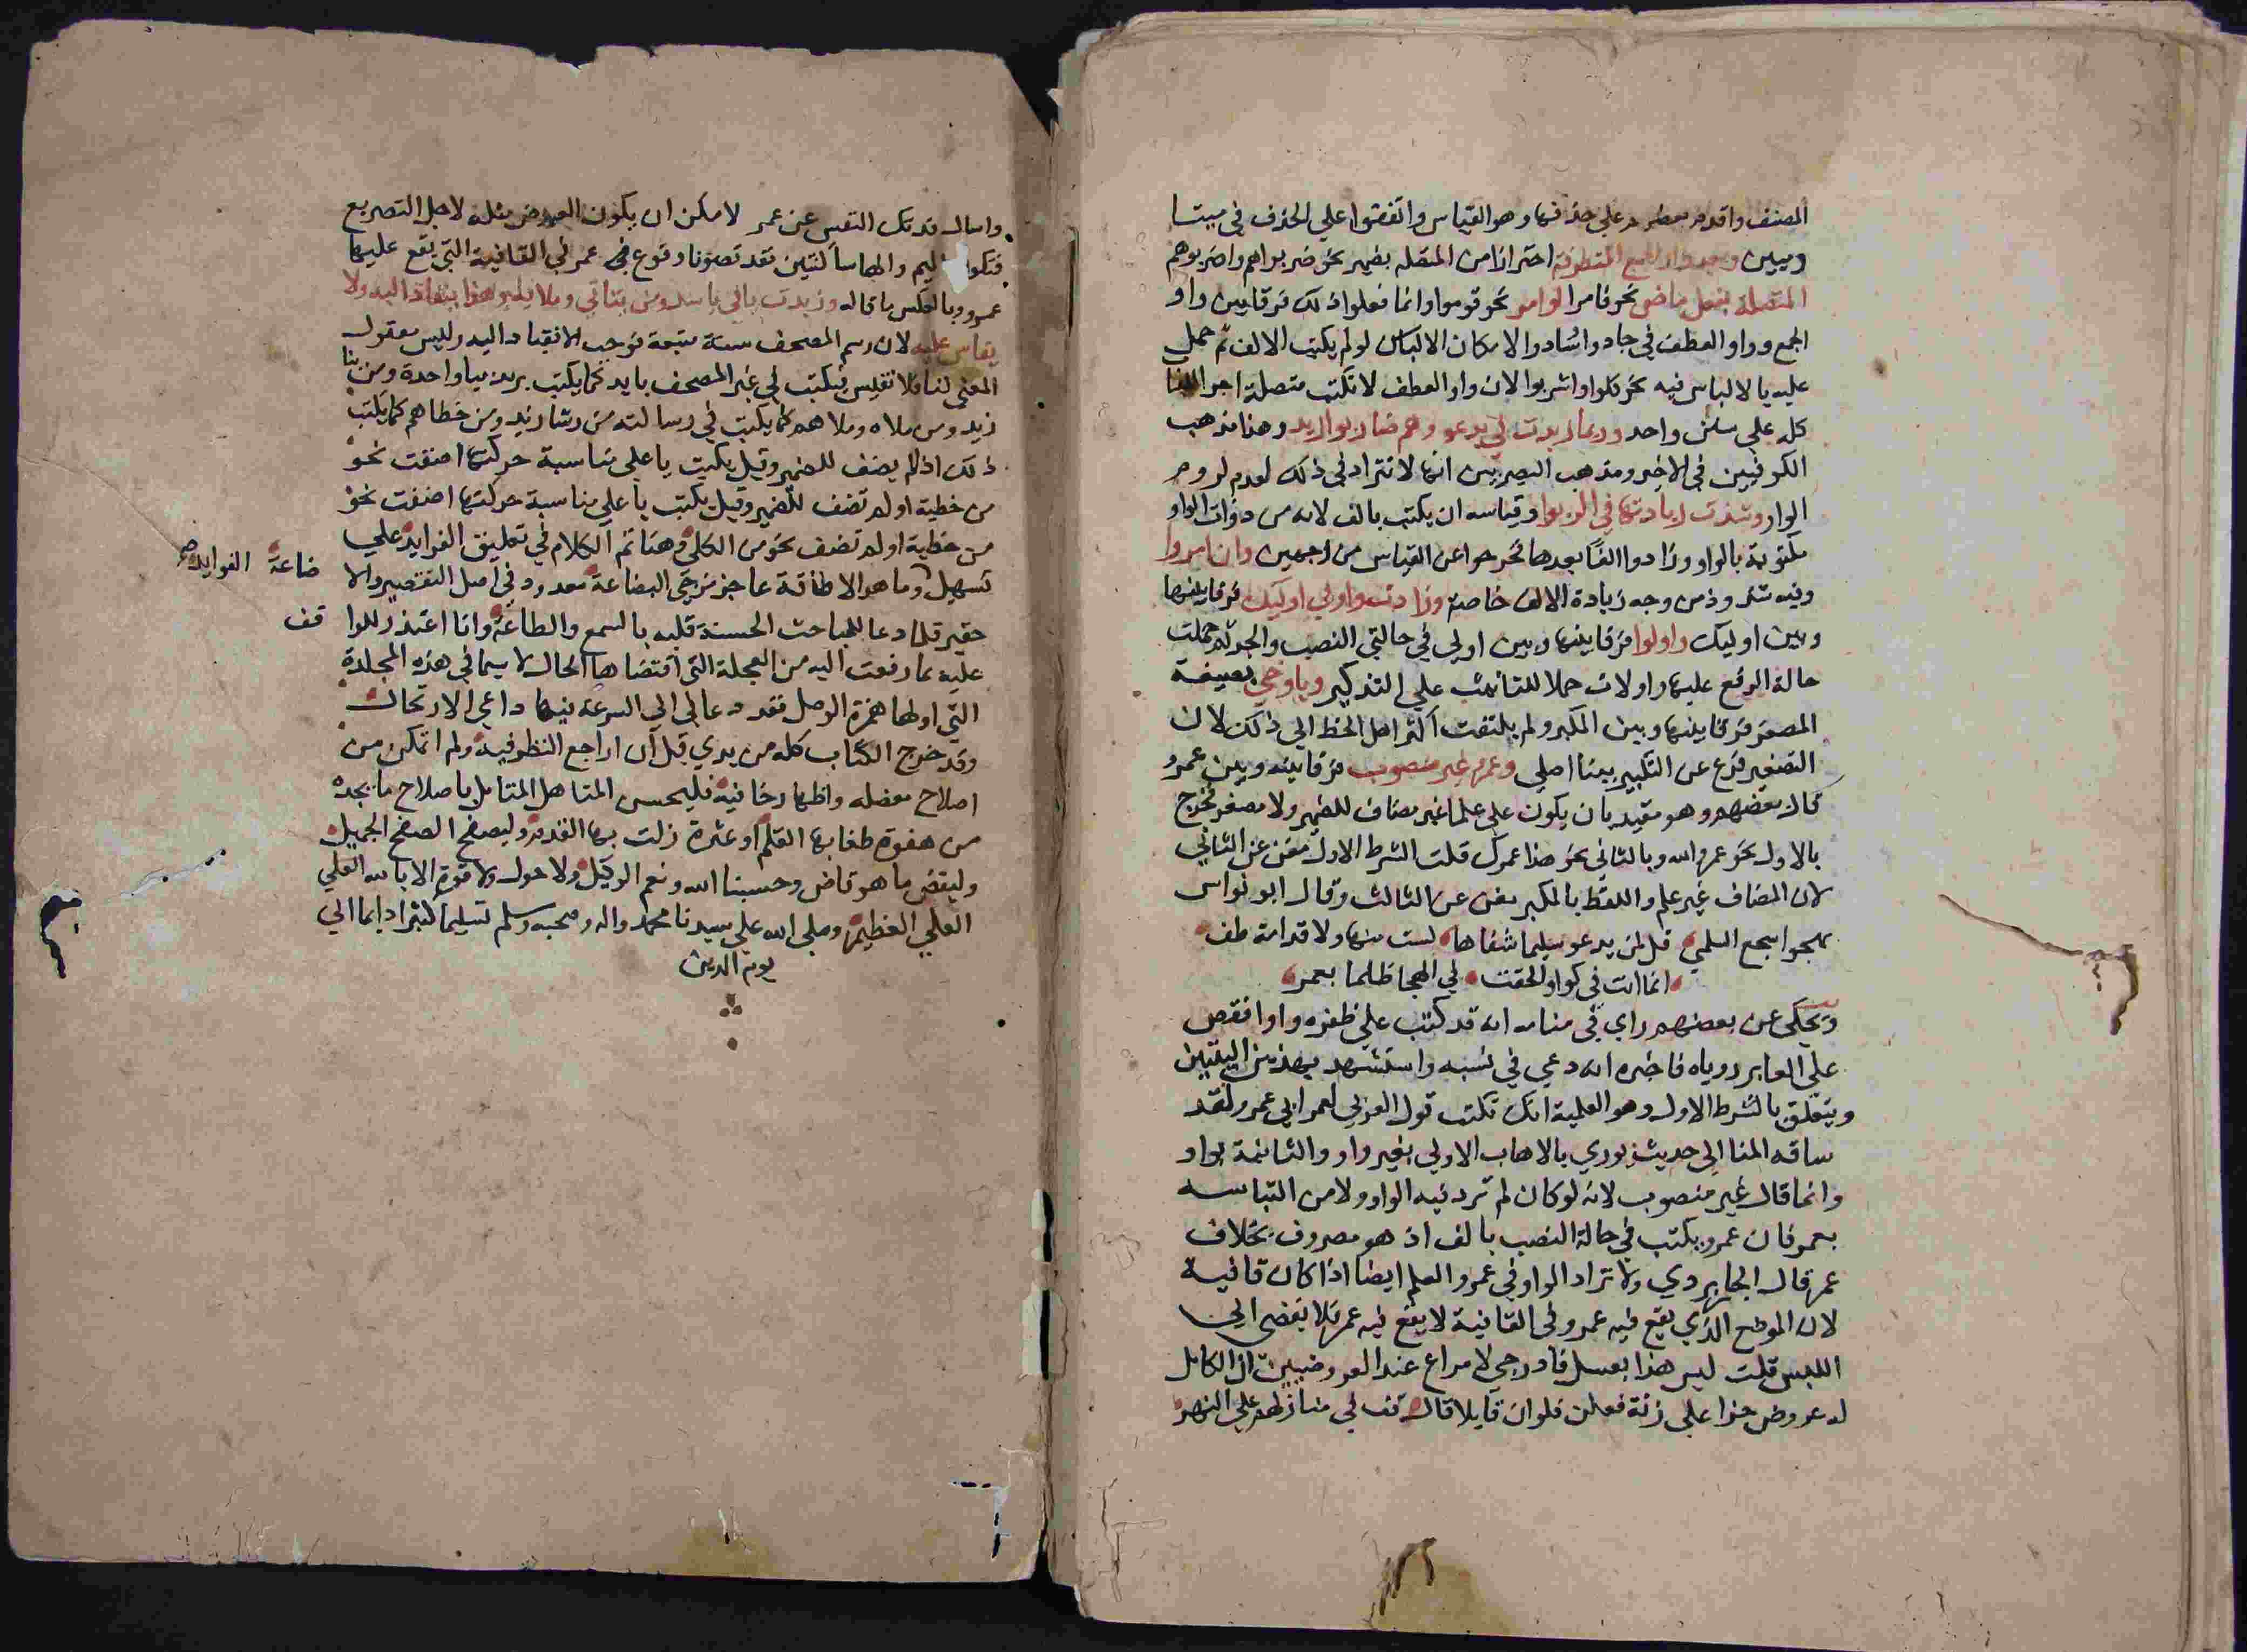 المصنف واقدم بعضهم علي حذفها وهو القياس واتفقوا علي الحذف في ميتا
وميين وبعد واو الجمع المتطرفة احترازا من المتصله بضمير نحو ضربواهم واضربوهم
المتصلة بفعل ماض نحو قاموا او امر نحو قوموا وانما فعلوا ذلك فرقا بين واو
الجمع وواو العطف في جاد واشادوا لامكان الالباس لو لم يكتب الالف ثم حمل
عليه ما لا لباس فيه نحو كلوا واشربوا لان واو العطف لا تكتب متصلة اجرا للبا
كله علي سنن واحد وربما زيدت في يدعو وهم ضاربوا زيد وهذا مذهب
الكوفيين في الاخير ومذهب البصريين انها لا تزاد في ذلك لعدم لزوم
الواو وشذت زيادتها في الربوا وقياسه ان يكتب بالف لانه من ذوات الواو
مكتوبة بالواو وزادوا الفا بعدها نخرجوا عن القياس من وجهين وان امروا
وفيه شذوذ من وجه زيادة الالف خاصة وزادت واو في اوليك فرقا بينها
وبين اوليك واولوا فرقا بينها وبين اولي في حالتي النصب والجر ثم حملت
حالة الرفع عليها واولات حملا للتانيث علي التذكير وياوخي بصيغة
المصغر فرقا بينها وبين المكبر ولم يلتفت اكثر اهل الخط الي ذلك لان
التصغير فرع عن التكبير بينا اصلي وعمرو غير منصوب فرقا بينه وبين عمر
قال بعضهم وهو مقيد بان يكون علي علما غير مضاف للضمير ولا مصغر فخرج
بالاول نحو عمر الله وبالثاني نحو هذا عمرك قلت الشرط الاول مغن عن الثاني
لان المضاف غير علم واللفظ بالمكبر مغن عن الثالث وقال ابو نواس
يهجوا سجع السلمي قل لمن يدعو سليما شفاها لست منها ولا قدامة طف
انما انت في كواو الحقت في الهجا ظلما بعمر
ويحكي عن بعضهم راي في منامه انه قد كتب علي ظفره واوا فقص
علي العابر روياه فاخبره انه دعي في نسبه واستشهد بهذين البيتين
ويتعلق بالشرط الاول وهو العلمية انك تكتب قول العربي لعمر ابي عمرو لقد
ساقه المنا الي حديث يوري بالاهاب الاولي بغير واو والثانية بواو
وانما قال غير منصوب لانه لو كان لم تزد فيه الواو ولا من التباسه
بعمر فان عمرو يكتب في حالة النصب بالف اذ هو مصروف بخلاف
عمر قال الجاربردي ولا تزاد الواو في عمرو العلم ايضا اذا كان قافية
لان الموضع الذي يقع فيه عمرو في القافية لا يقع فيه عمر فلا يفضي الي
اللبس قلت ليس هذا فاد عند العروضيين ان الكامل
له عروض حذا علي زنة فعلن فلو ان قايلا قال قف في منازلهم علي النهر
واسال قد تك النفس عن عمر لامكن ان يكون العروض مثله لاجل التصريع
فتكو الميم والها ساكنتين فقد تصورنا وقوع في عمر في القافية التي يقع عليها
عمرو وبالعكس ما قاله وزيدت يا في باييد ومن بناي وملايه وهذا ينقاد اليه ولا
يقاس عليه لان رسم المصحف سنة متبعة فوجب الانقياد اليه وليس معقول
المعني لنا فلا نقيس فيكتب في غير المصحف بايد كما يكتب بريد بيا واحدة ومن بنا
زيد ومن ملاه وملاهم كما يكتب في رسالته من رشا زيد ومن خطاهم كما يكتب
ذلك اذا لم يضف للضمير وقيل يكتب يا علي مناسبة حركتها اضفت نحو
من خطية او لم تضف للضمير وقيل يكتب يا علي مناسبة حركتها اضفت نحو
من خطية او لم تضف نحو من الكلي وهنا تم الكلام في تعليق الفرايد علي
تسهيل وما هو الا طاقة عاجز مزجي البضاعة معدود في اصل التقصير والا
ضاعة الفوايد صح
حقير قلما دعا للمباحث الحسنة قلبه بالسمع والطاعة وانا اعتذر للوا قف
عليه مما رفعت اليه من العجلة التي اقتضاها الحال لا سيما في هذه المجلدة
التي اولها همزة الوصل فقد دعا لي الي السرعة فيها داعي الارتحال
وقد خرج الكتاب كله من يدي قبل ان اراجع النظر فيه ولم اتمكن من
اصلاح معضله واظهار خافيه فليحسن المتاهل المتامل باصلاح ما يجده
من هفوة طغا بها القلم او عثرة زلت بها القدم وليصفح الصفح الجميل
وليقض ما هو قاض وحسبنا الله ونعم الوكيل ولا حول ولا قوة الا بالله العلي
العلي العظيم وصلي الله علي سيدنا محمد واله وصحبه وسلم تسليما كثيرا دايما الي
يوم الدين